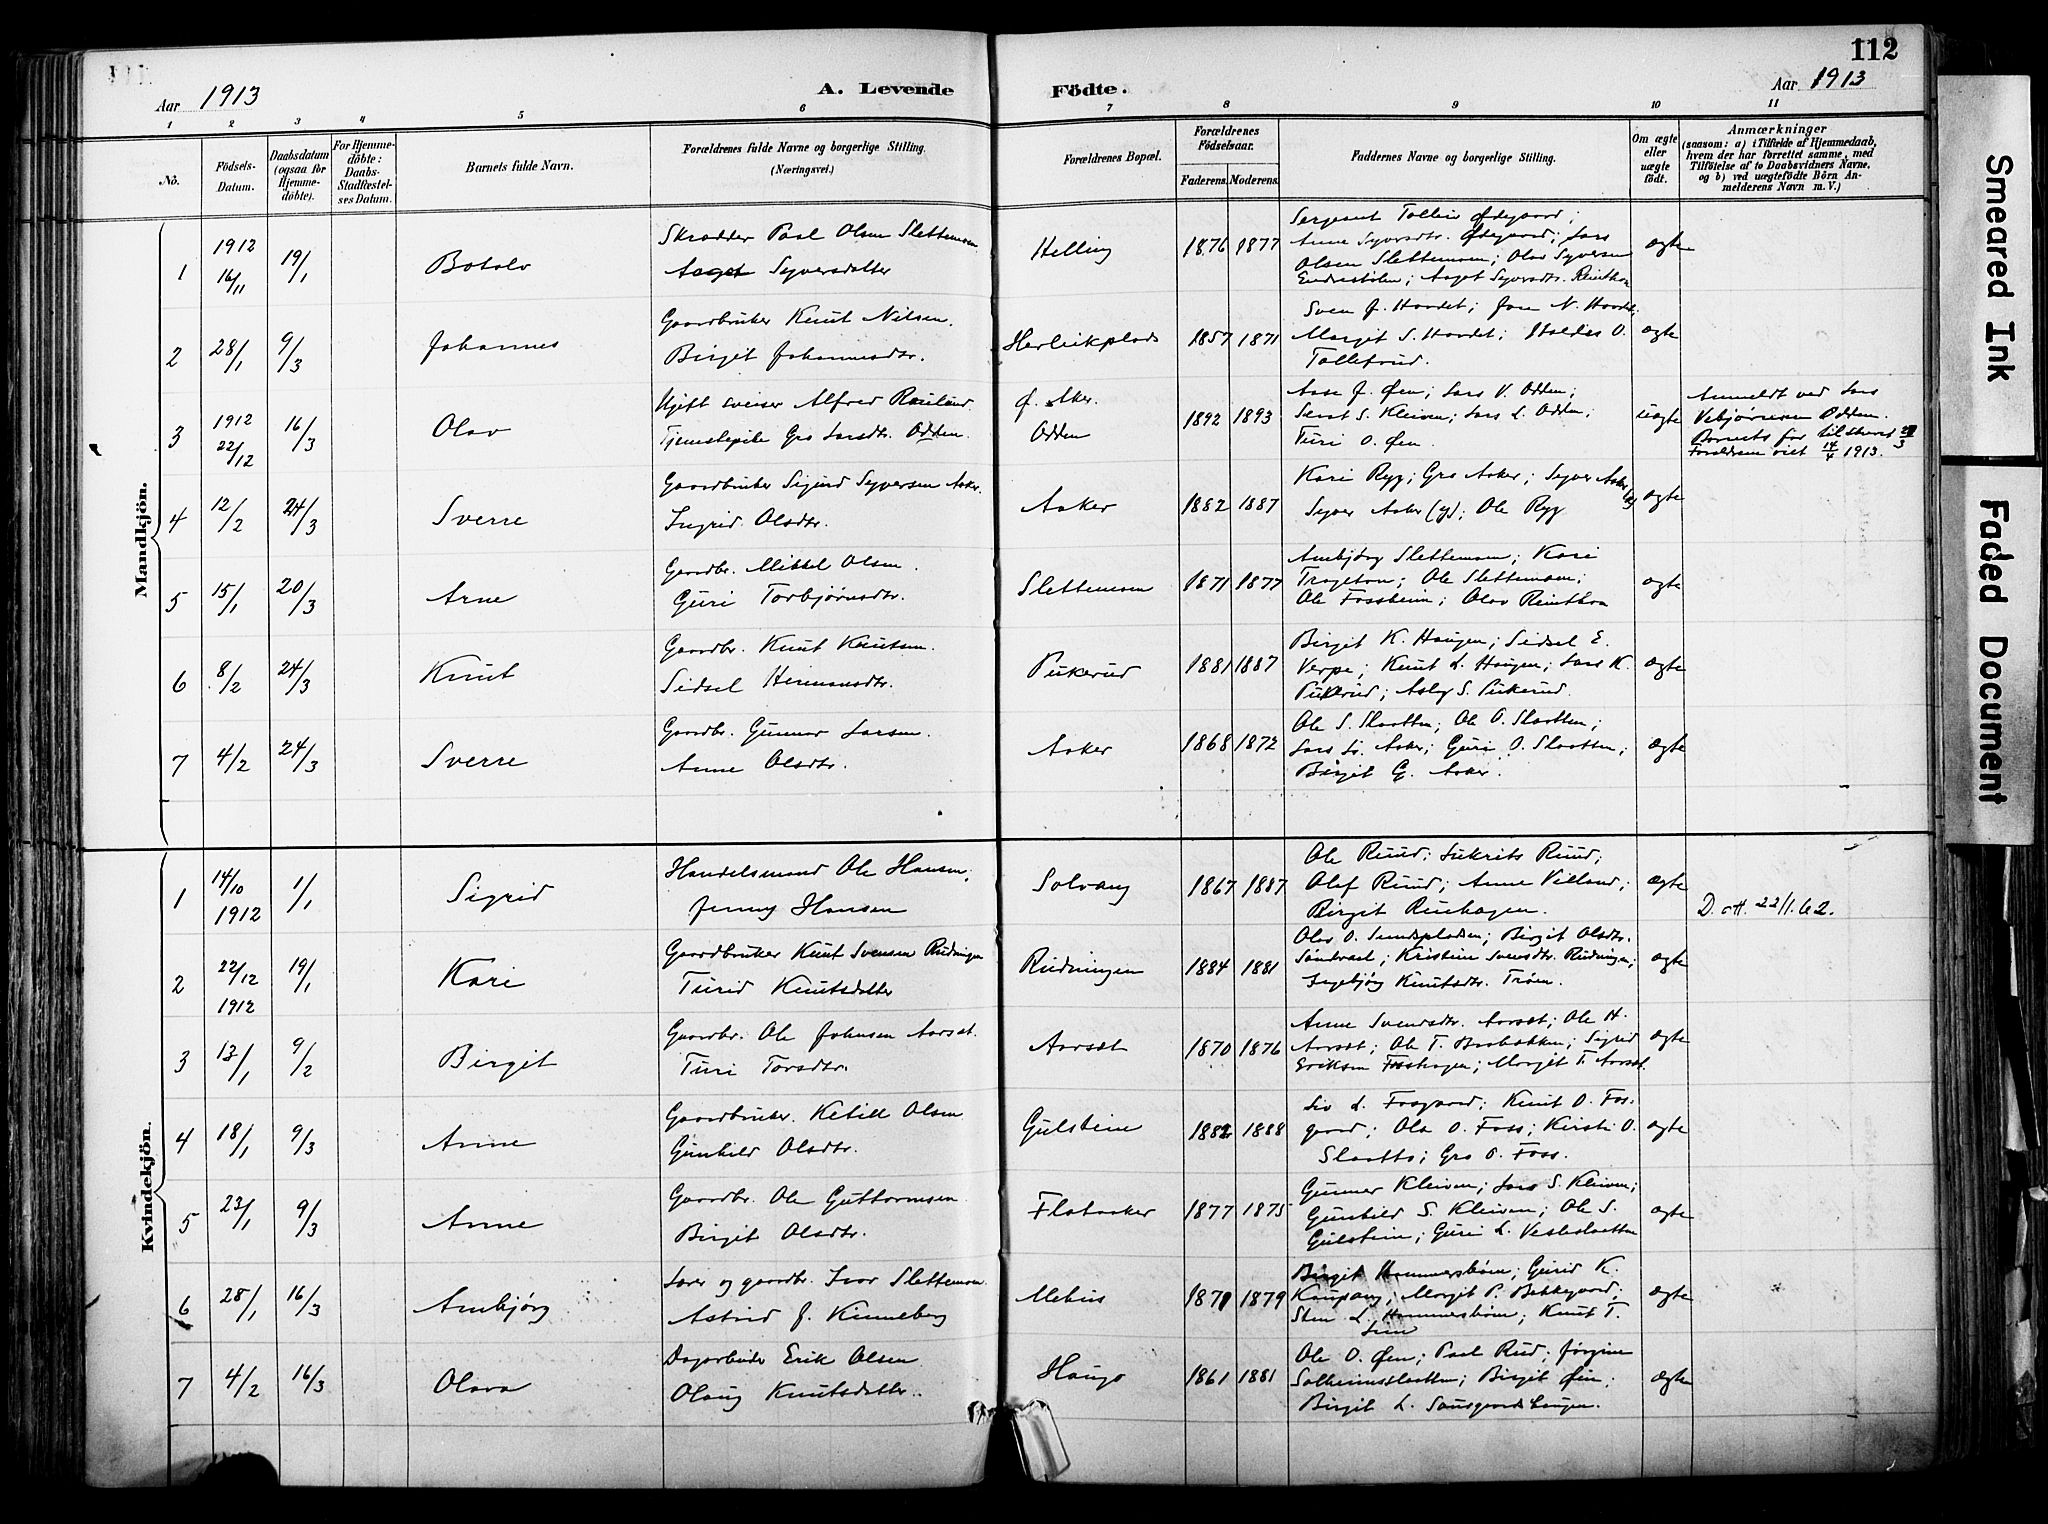 112
Aar 1913
A. Levende Födte.
Aar 1913
1 2 3 4 5 6 7 8 9 10 11
No.
Födsels-Datum.
Daabsdatum (ogsaa for Hjemme-döbte).
For Hjemme-döbte: Daabs-Stadfæstel-ses Datum.
Barnets fulde Navn.
Forældrenes fulde Navne og borgerlige Stilling. (Næringsvei.)
Forældrenes Bopæl.
Forældrenes Födselsaar.
Faderens. Moderens.
Faddernes Navne og borgerlige Stilling.
Om ægte eller uægte födt.
Anmærkninger
(saasom: a) i Tilfælde af Hjemmedaab,
hvem der har forrettet samme, med
Tilföielse af to Daabsvidners Navne,
og b) ved uægtefödte Börn An-
melderens Navn m. V.)
Mandkjön.
1 1912 16/11 19/1 Botolv
Skrædder Paal Olsen Slettemoen
Aaget Syversdatter
Helling 1876 1877
Sergeant Tollein Ødegaard;
Anne Syversdtr. Ødegaard; Lars
Olsen Slettemoen; Olav Syversen
Endrestølen; Aaget Syversdtr. Reinthon
ægte
2 28/1 9/3 Johannes
Gaardbruker Knut Nilsen.
Birgit Johannesdtr.
Herleikplads 1857 1871
Sven J. Hovdet; Jon N. Hovdet;
Margit S. Hovdet; Haldis O.
Tollefrud.
ægte
3 1912 22/12 16/3 Olav
Ugift sveiser Alfred Rauland.
Tjenestepike Gro Larsdtr. Odden.
Ø. Aker.
Odden 1892 1893
Aase J. Øen; Lars V. Odden;
S. Kleiven; Lars L. Odden;
Turi O. Øen.
uægte
Anmeldt ved Lars
Vebjørnsen Odden.
Barnets far tilskrevet
Forældrene viet 14/4 1913.
4 12/2 24/3 Sverre
Gaardbruker Sigurd Syversen Aaker.
Ingrid Olsdtr.
Aaker 1882 1887
Kari Ryg; Gro Aaker; Syver Aaker
Syver Aaker (y); Ole Ryg
ægte
5 15/1 20/3 Arne
Gaardbr. Mikkel Olsen.
Guri Torbjørnsdtr.
Slettemoen 1871 1877
Ambjørg Slettemoen; Kari
Trageton; Ole Slettemoen;
Ole Fossheim; Olav Reinthon
ægte
6 8/2 24/3 Knut
Gaardbr. Knut Knutsen.
Sidsel Hermansdtr.
Pukerud 1881 1887
Birgit K. Haugen; Sidsel E.
Verpe; Knut L. Haugen; Lars K.
Pukerud; Aslag S. Pukerud.
ægte
7 4/2 24/3 Sverre
Gaardbr. Gunnar Larsen.
Anne Olsdtr.
Aaker 1868 1872
Ole S. Slaatten; Ole O. Slaatten;
Lars Aaker; Guri O. Slaatten;
Birgit G. Aaker.
ægte
Kvindekjön.
1 14/10 1912 1/1 Sigrid
Handelsmand Ole Hansen;
Jenny Hansen
Solvang 1867 1887
Ole Ruud; Ruud;
Olaf Ruud; Anne Villand;
Birgit Ruuhagen.
ægte
D. att. 22/1.62.
2 22/12 1912 19/1 Kari
Gaardbruker Knut Svensen Rudningen
Turid Knutsdatter
Rudningen 1884 1881
Olav O. Sundspladsen; Birgit Olsdtr.
Søndreal; Kristine Svensdtr. Rudningen;
Ingebjørg Knutsdtr. Trøen.
ægte
3 13/1 9/2 Birgit
Gaardbr. Ole Johnsen Aarset.
Turi Torsdtr.
Aarset 1870 1876
Anne Svensdtr. Aarset; Ole H.
Aarset; Ole T. Bosbakken; Sigrid
Eriksen Fosshagen; Margit T. Aarset.
ægte
4 18/1 9/3 Anne
Gaardbruker. Ketill Olsen
Gunhild Olsdtr.
Gulstein 1882 1888
Liv L. Fosgaard; Knut O. Fos-
gaard; Ola O. Foss; Kirsti O.
Slaatto; Gro O. Foss.
ægte
5 23/1 9/3 Anne
Gaardbr. Ole Guttormsen
Birgit Olsdtr.
Flataaker 1877 1875
Gunnar Kleiven; Lars S. Kleiven;
Gunhild S. Kleiven; Ole S.
Gulstein; Guri L. Vesleslaatten
ægte
6 28/1 16/3 Ambjørg
Lærer og gaardbr. Ivar Slettemoen.
Astrid J. Kinneberg
Mehus 1871 1879
Birgit Hammersbøen; Gurid K.
Kaupang; Margit P. Bekkegaard;
Sten L. Hammersbøen; Knut T.
Lien
ægte
7 4/2 16/3 Olava
Dagarbeider Erik Olsen
Olaug Knutsdatter.
Haugo 1861 1881
Ole O. Øen; Paal Rud; Jørgine
Solheimsslaatten; Birgit Øen;
Birgit L. Sausgaardshaugen.
ægte
Smeared Ink
Faded Document